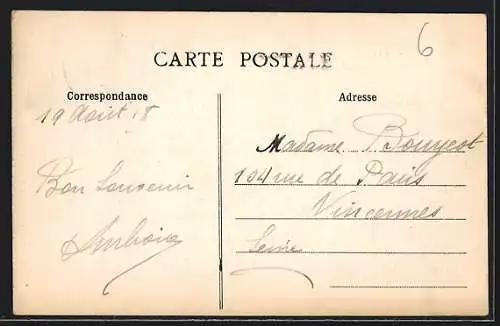 6
CARTE POSTALE
Correspondance
Adresse
19 Août 18
Bon Souvenir
Madame Bougeot
104 rue de Paris
Vincennes
Seine